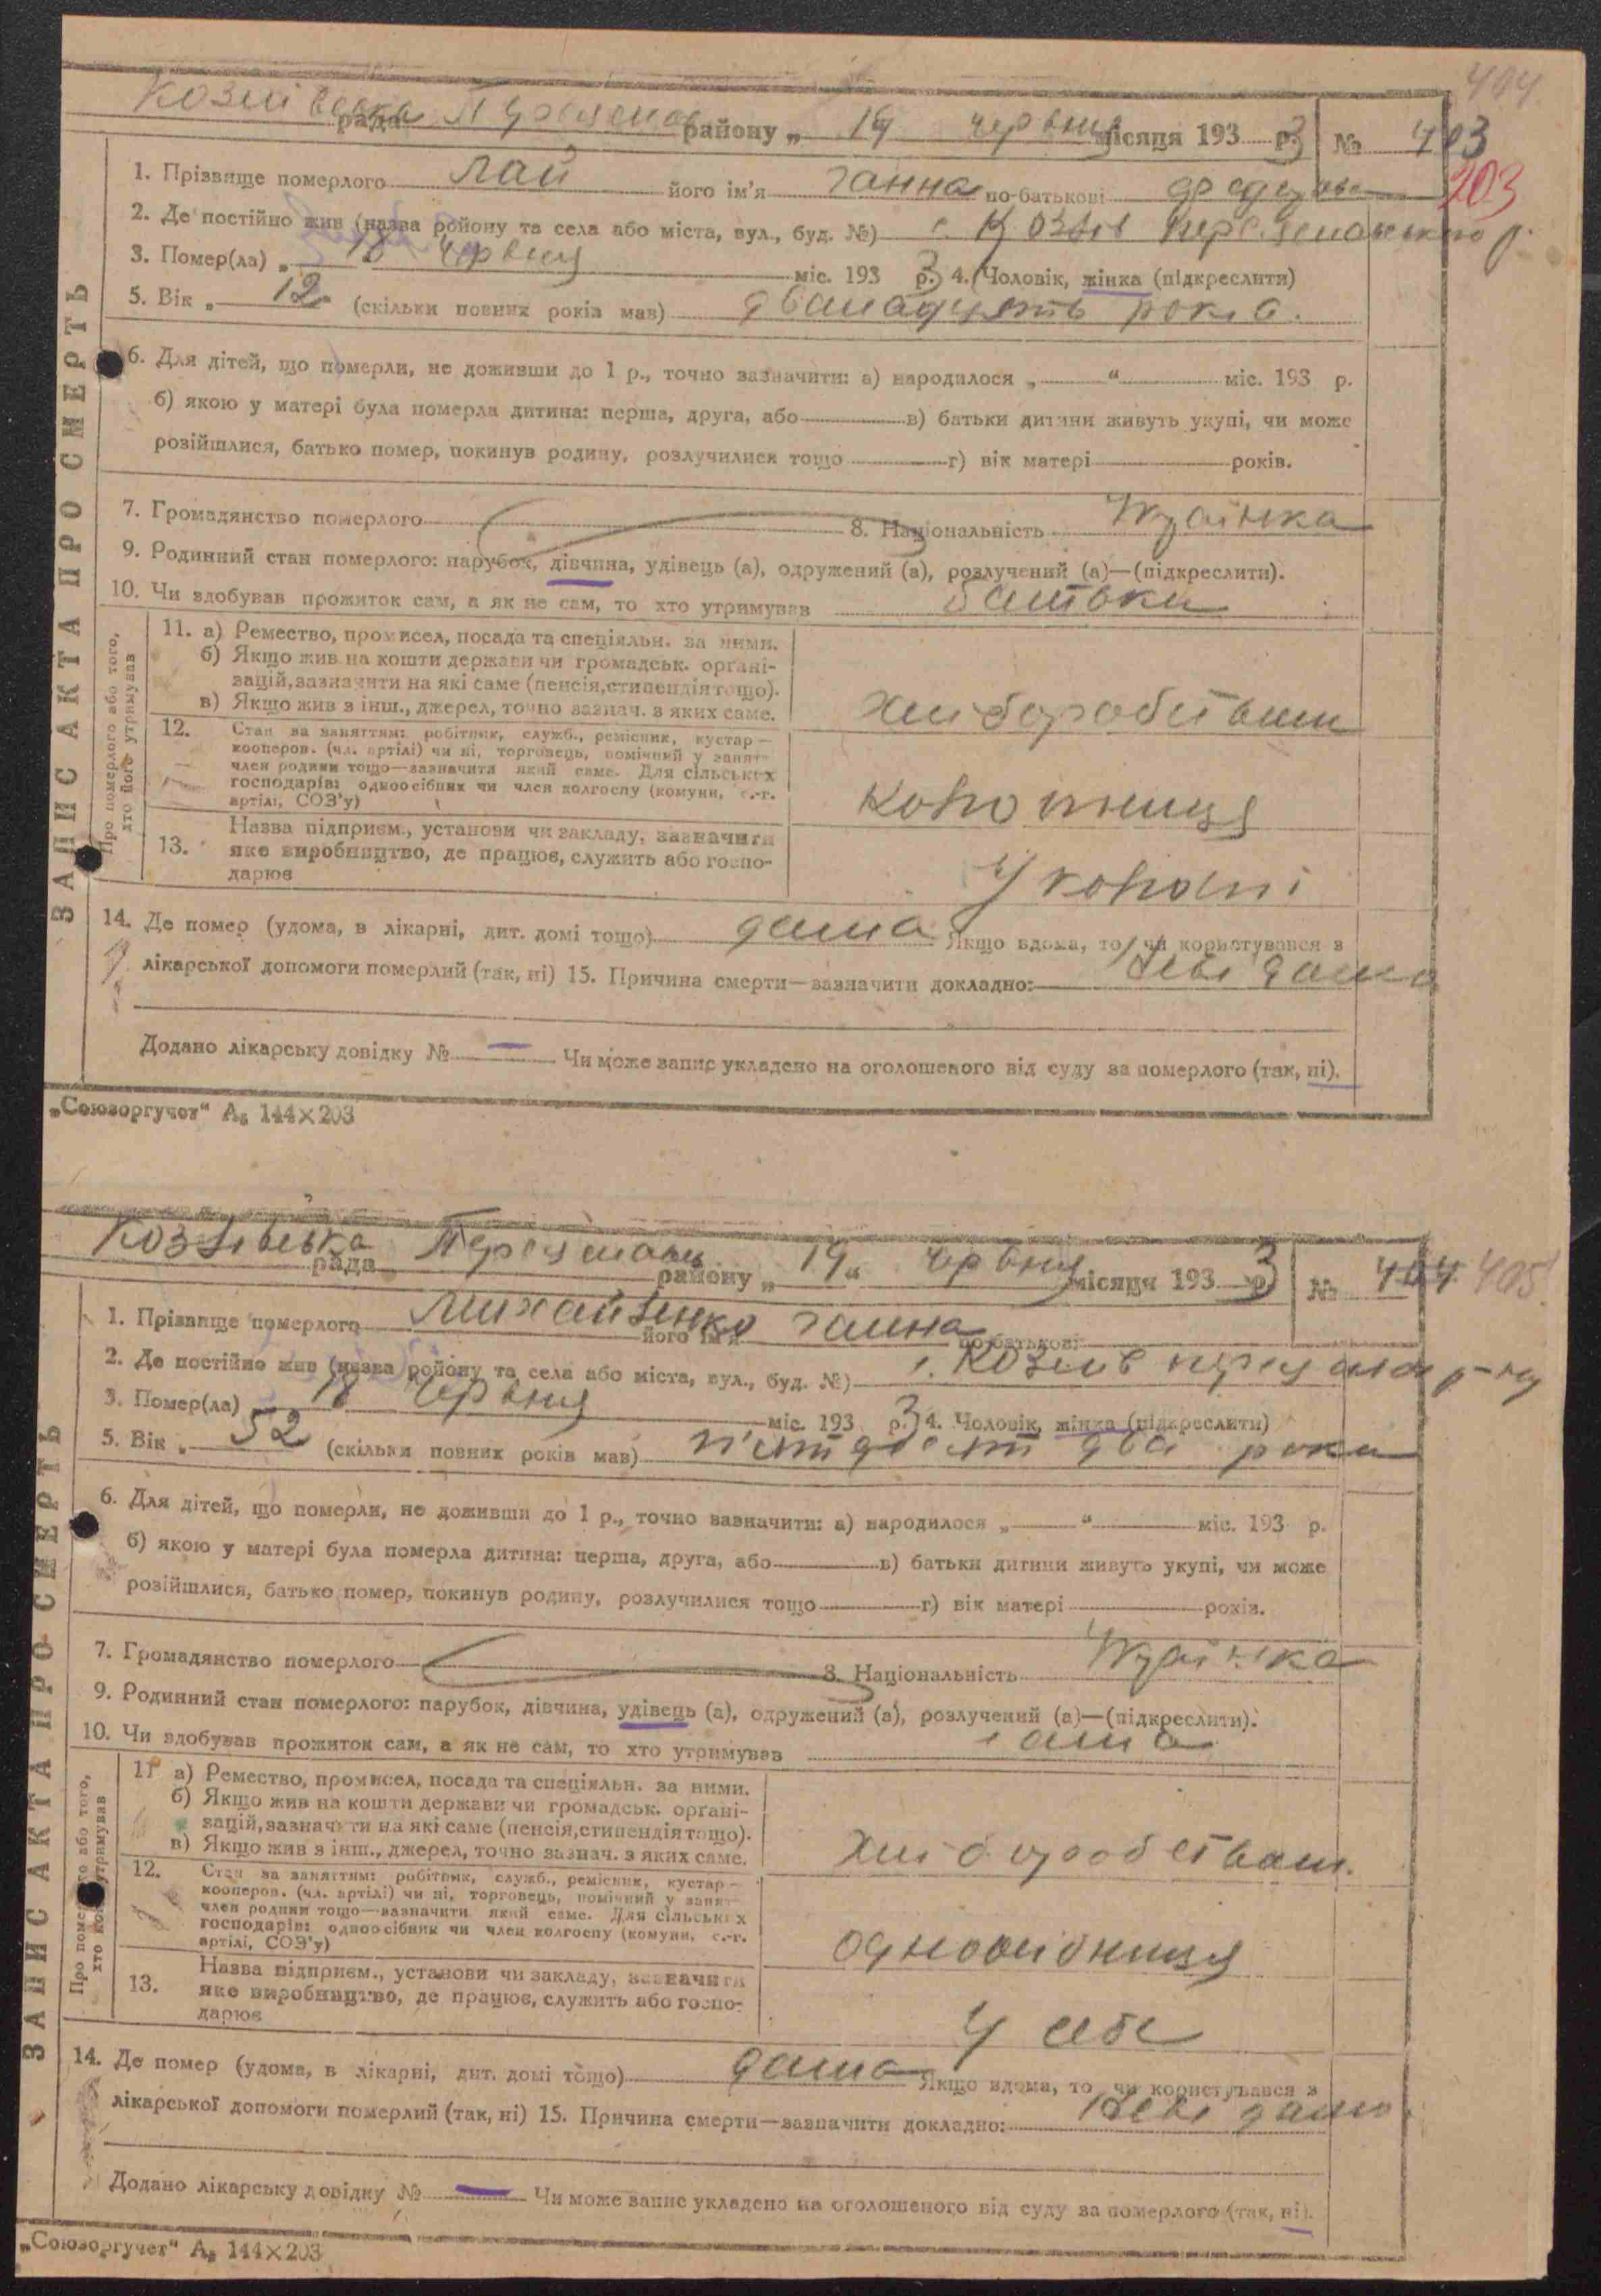 404
Козлівська рада Переяслав району „ 19 червня місяця 193 3 р. № 403
203
1. Прізвище померлого Лай його ім'я Ганна по-батькові
2. Де постійно жив (назва ройону та села або міста, вул., буд. №) с. Козлів Переяславського р.
3. Помер(ла) „ 18 червня міс. 193 3 р. 4. Чоловік, жінка (підкреслити)
5. Вік „ 12 (скільки повних років мав) дванадцять років.
6. Для дітей, що померли, не доживши до 1 р., точно зазначити: а) народилося „ “ міс. 193 р.
б) якою у матері була померла дитина: перша, друга, або в) батьки дитини живуть укупі, чи може
розійшлися, батько помер, покинув родину, розлучилися тощо г) вік матері років.
7. Громадянство померлого 8. Національність Українка
9. Родинний стан померлого: парубок, дівчина, удівець (а), одружений (а), розлучений (а)—(підкреслити).
10. Чи здобував прожиток сам, а як не сам, то хто утримував батьки
ЗАПИС АКТА ПРО СМЕРТЬ
Про померлого або того, хто його утримував
11. а) Ремество, промисел, посада та спеціяльн. за ними.
б) Якщо жив на кошти держави чи громадськ. орґані-
зацій, зазначити на які саме (пенсія, стипендія тощо).
в) Якщо жив з інш., джерел, точно зазнач. з яких саме.
хліборобством
12. Стан за заняттям: робітник, служб., ремісник, кустар—
кооперов. (чл. артілі) чи ні, торговець, помічний у занят-
член родини тощо—зазначити який саме. Для сільських
господарів: одноосібник чи член колгоспу (комуни, с.-г.
артілі, СОЗ'у)
13. Назва підприєм., установи чи закладу, зазначити
яке виробництво, де працює, служить або госпо-
дарює
14. Де помер (удома, в лікарні, дит. домі тощо) дома Якщо вдома, то чи користувався з
лікарської допомоги померлий (так, ні) 15. Причина смерти—зазначити докладно:
Додано лікарську довідку № — Чи може запис укладено на оголошеного від суду за померлого (так, ні).
„Союзоргучет“ А₅ 144×203
Козлівська рада Переяслав району „ 19 “ червня місяця 193 3 р. № 404 405
1. Прізвище померлого Михайленко його ім'я Ганна по-батькові
2. Де постійно жив (назва ройону та села або міста, вул., буд. №) с. Козлів Переяслав р-ну
3. Помер(ла) „ 18 червня міс. 193 3 р. 4. Чоловік, жінка (підкреслити)
5. Вік „ 52 (скільки повних років мав) п'ятдесят два роки
6. Для дітей, що померли, не доживши до 1 р., точно зазначити: а) народилося „ “ міс. 193 р.
б) якою у матері була померла дитина: перша, друга, або в) батьки дитини живуть укупі, чи може
розійшлися, батько помер, покинув родину, розлучилися тощо г) вік матері років.
7. Громадянство померлого 8. Національність Українка
9. Родинний стан померлого: парубок, дівчина, удівець (а), одружений (а), розлучений (а)—(підкреслити).
10. Чи здобував прожиток сам, а як не сам, то хто утримував сама
ЗАПИС АКТА ПРО СМЕРТЬ
Про померлого або того, хто його утримував
11 а) Ремество, промисел, посада та спеціяльн. за ними.
б) Якщо жив на кошти держави чи громадськ. орґані-
зацій, зазначити на які саме (пенсія, стипендія тощо).
в) Якщо жив з інш., джерел, точно зазнач. з яких саме.
хліборобством.
12. Стан за заняттям: робітник, служб., ремісник, кустар—
кооперов. (чл. артілі) чи ні, торговець, помічний у занят-
член родини тощо—зазначити який саме. Для сільських
господарів: одноосібник чи член колгоспу (комуни, с.-г.
артілі, СОЗ'у)
одноосібниця
13. Назва підприєм., установи чи закладу, зазначити
яке виробництво, де працює, служить або госпо-
дарює
У себе
14. Де помер (удома, в лікарні, дит. домі тощо) дома Якщо вдома, то чи користувався з
лікарської допомоги померлий (так, ні) 15. Причина смерти—зазначити докладно:
Додано лікарську довідку № — Чи може запис укладено на оголошеного від суду за померлого (так, ні).
„Союзоргучет“ А₅ 144×203